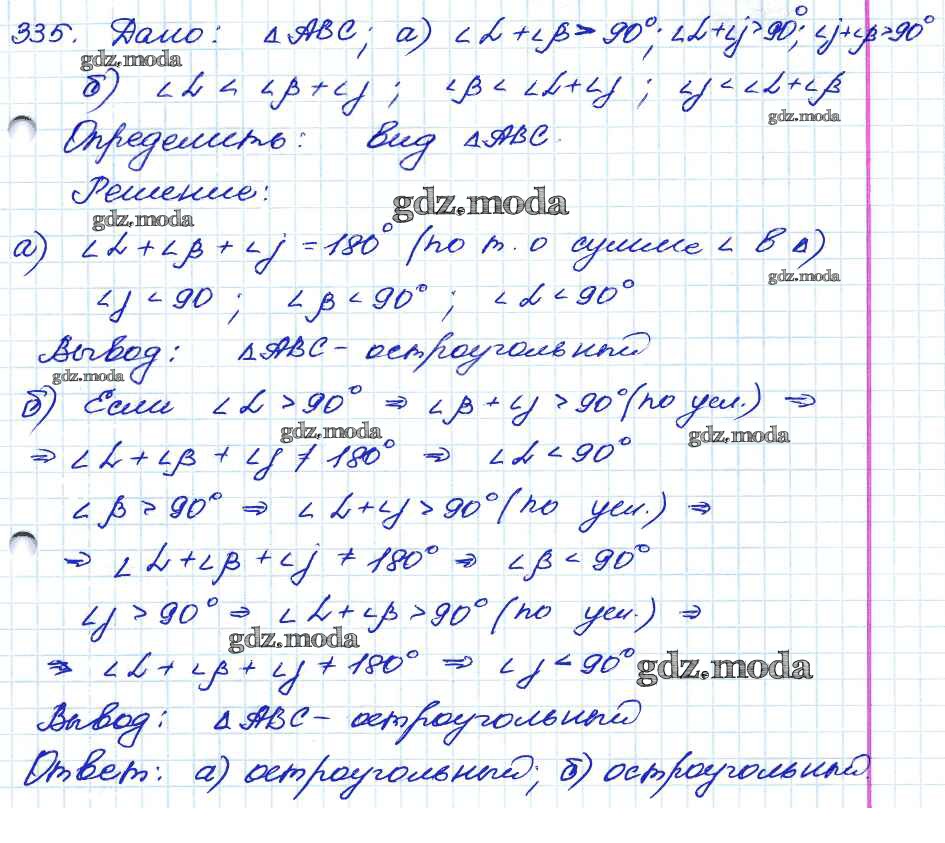 335. Дано: △ABC; а) ∠α+∠β>90°; ∠α+∠j>90°; ∠j+∠β>90°
gdz.moda
б) ∠α<∠β+∠j; ∠β<∠α+∠j; ∠j<∠α+∠β
gdz.moda
Определить: вид △ABC.
Решение:
gdz.moda
gdz.moda
а) ∠α+∠β+∠j=180° (по т. о сумме ∠ в △)
gdz.moda
∠j<90; ∠β<90°; ∠α<90°
Вывод: △ABC - остроугольный
gdz.moda
б) Если ∠α>90° ⇒ ∠β+∠j>90° (по усл.) ⇒
gdz.moda
gdz.moda
⇒ ∠α+∠β+∠j≠180° ⇒ ∠α<90°
∠β>90° ⇒ ∠α+∠j>90° (по усл.) ⇒
⇒ ∠α+∠β+∠j≠180° ⇒ ∠β<90°
∠j>90° ⇒ ∠α+∠β>90° (по усл.) ⇒
gdz.moda
⇒ ∠α+∠β+∠j≠180° ⇒ ∠j<90°
gdz.moda
Вывод: △ABC - остроугольный
Ответ: а) остроугольный; б) остроугольный.